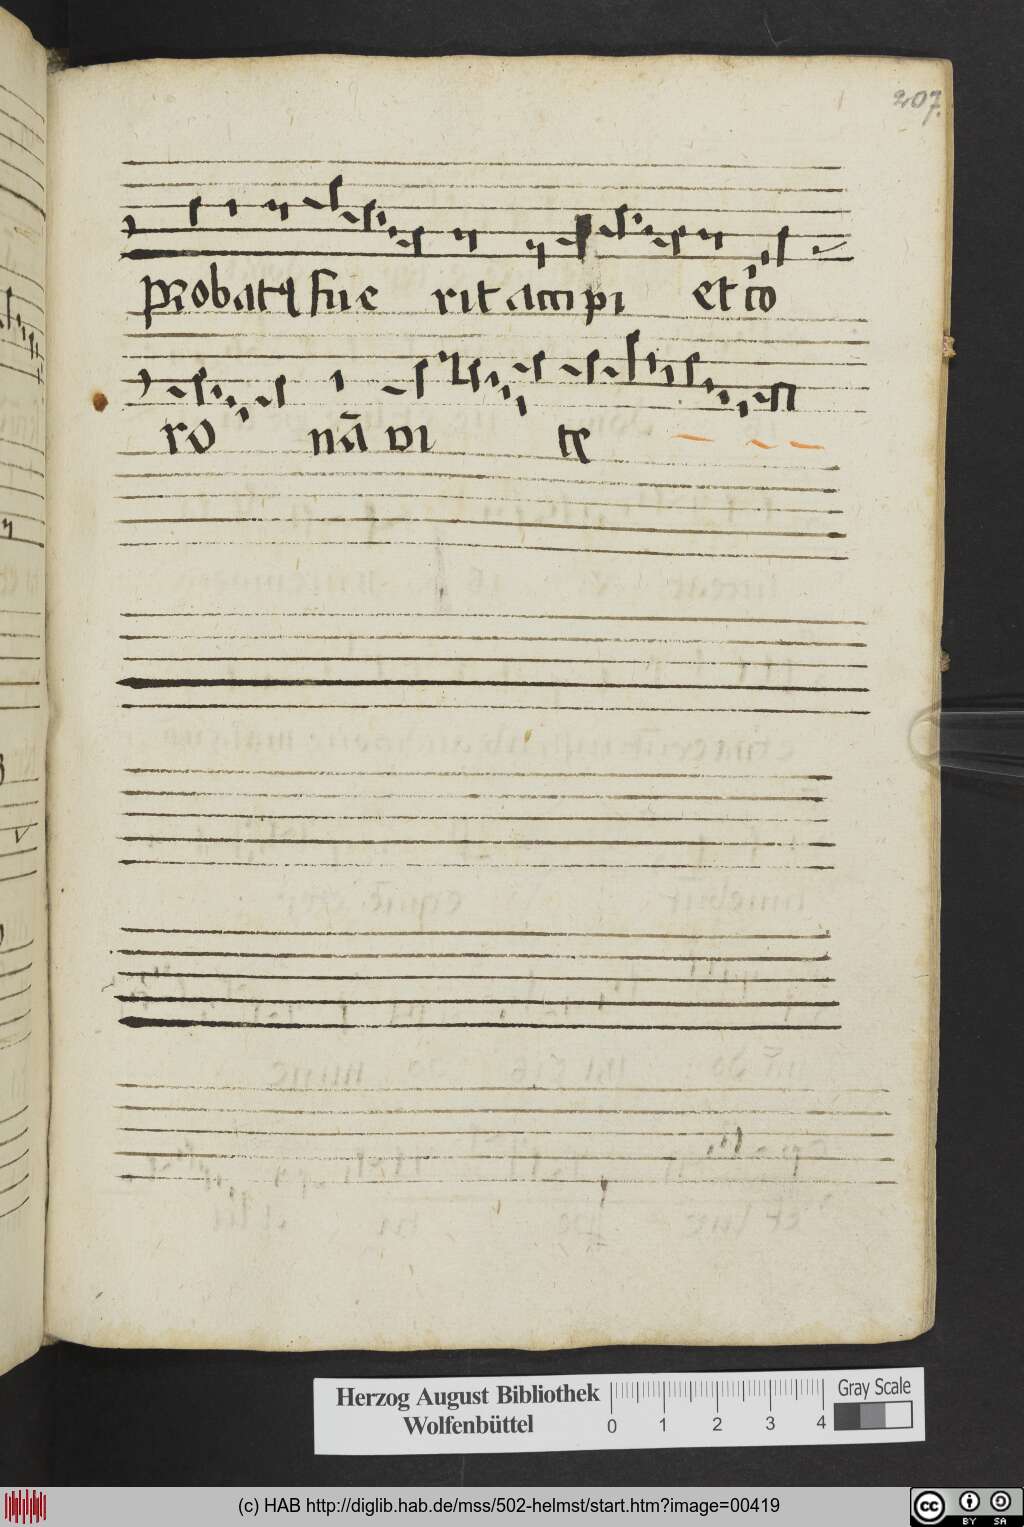 207.
Probatꝰ fue rit accipi et co
ro nā vi te
Herzog August Bibliothek
Wolfenbüttel
0 1 2 3 4
Gray Scale
(c) HAB http://diglib.hab.de/mss/502-helmst/start.htm?image=00419
cc BY SA